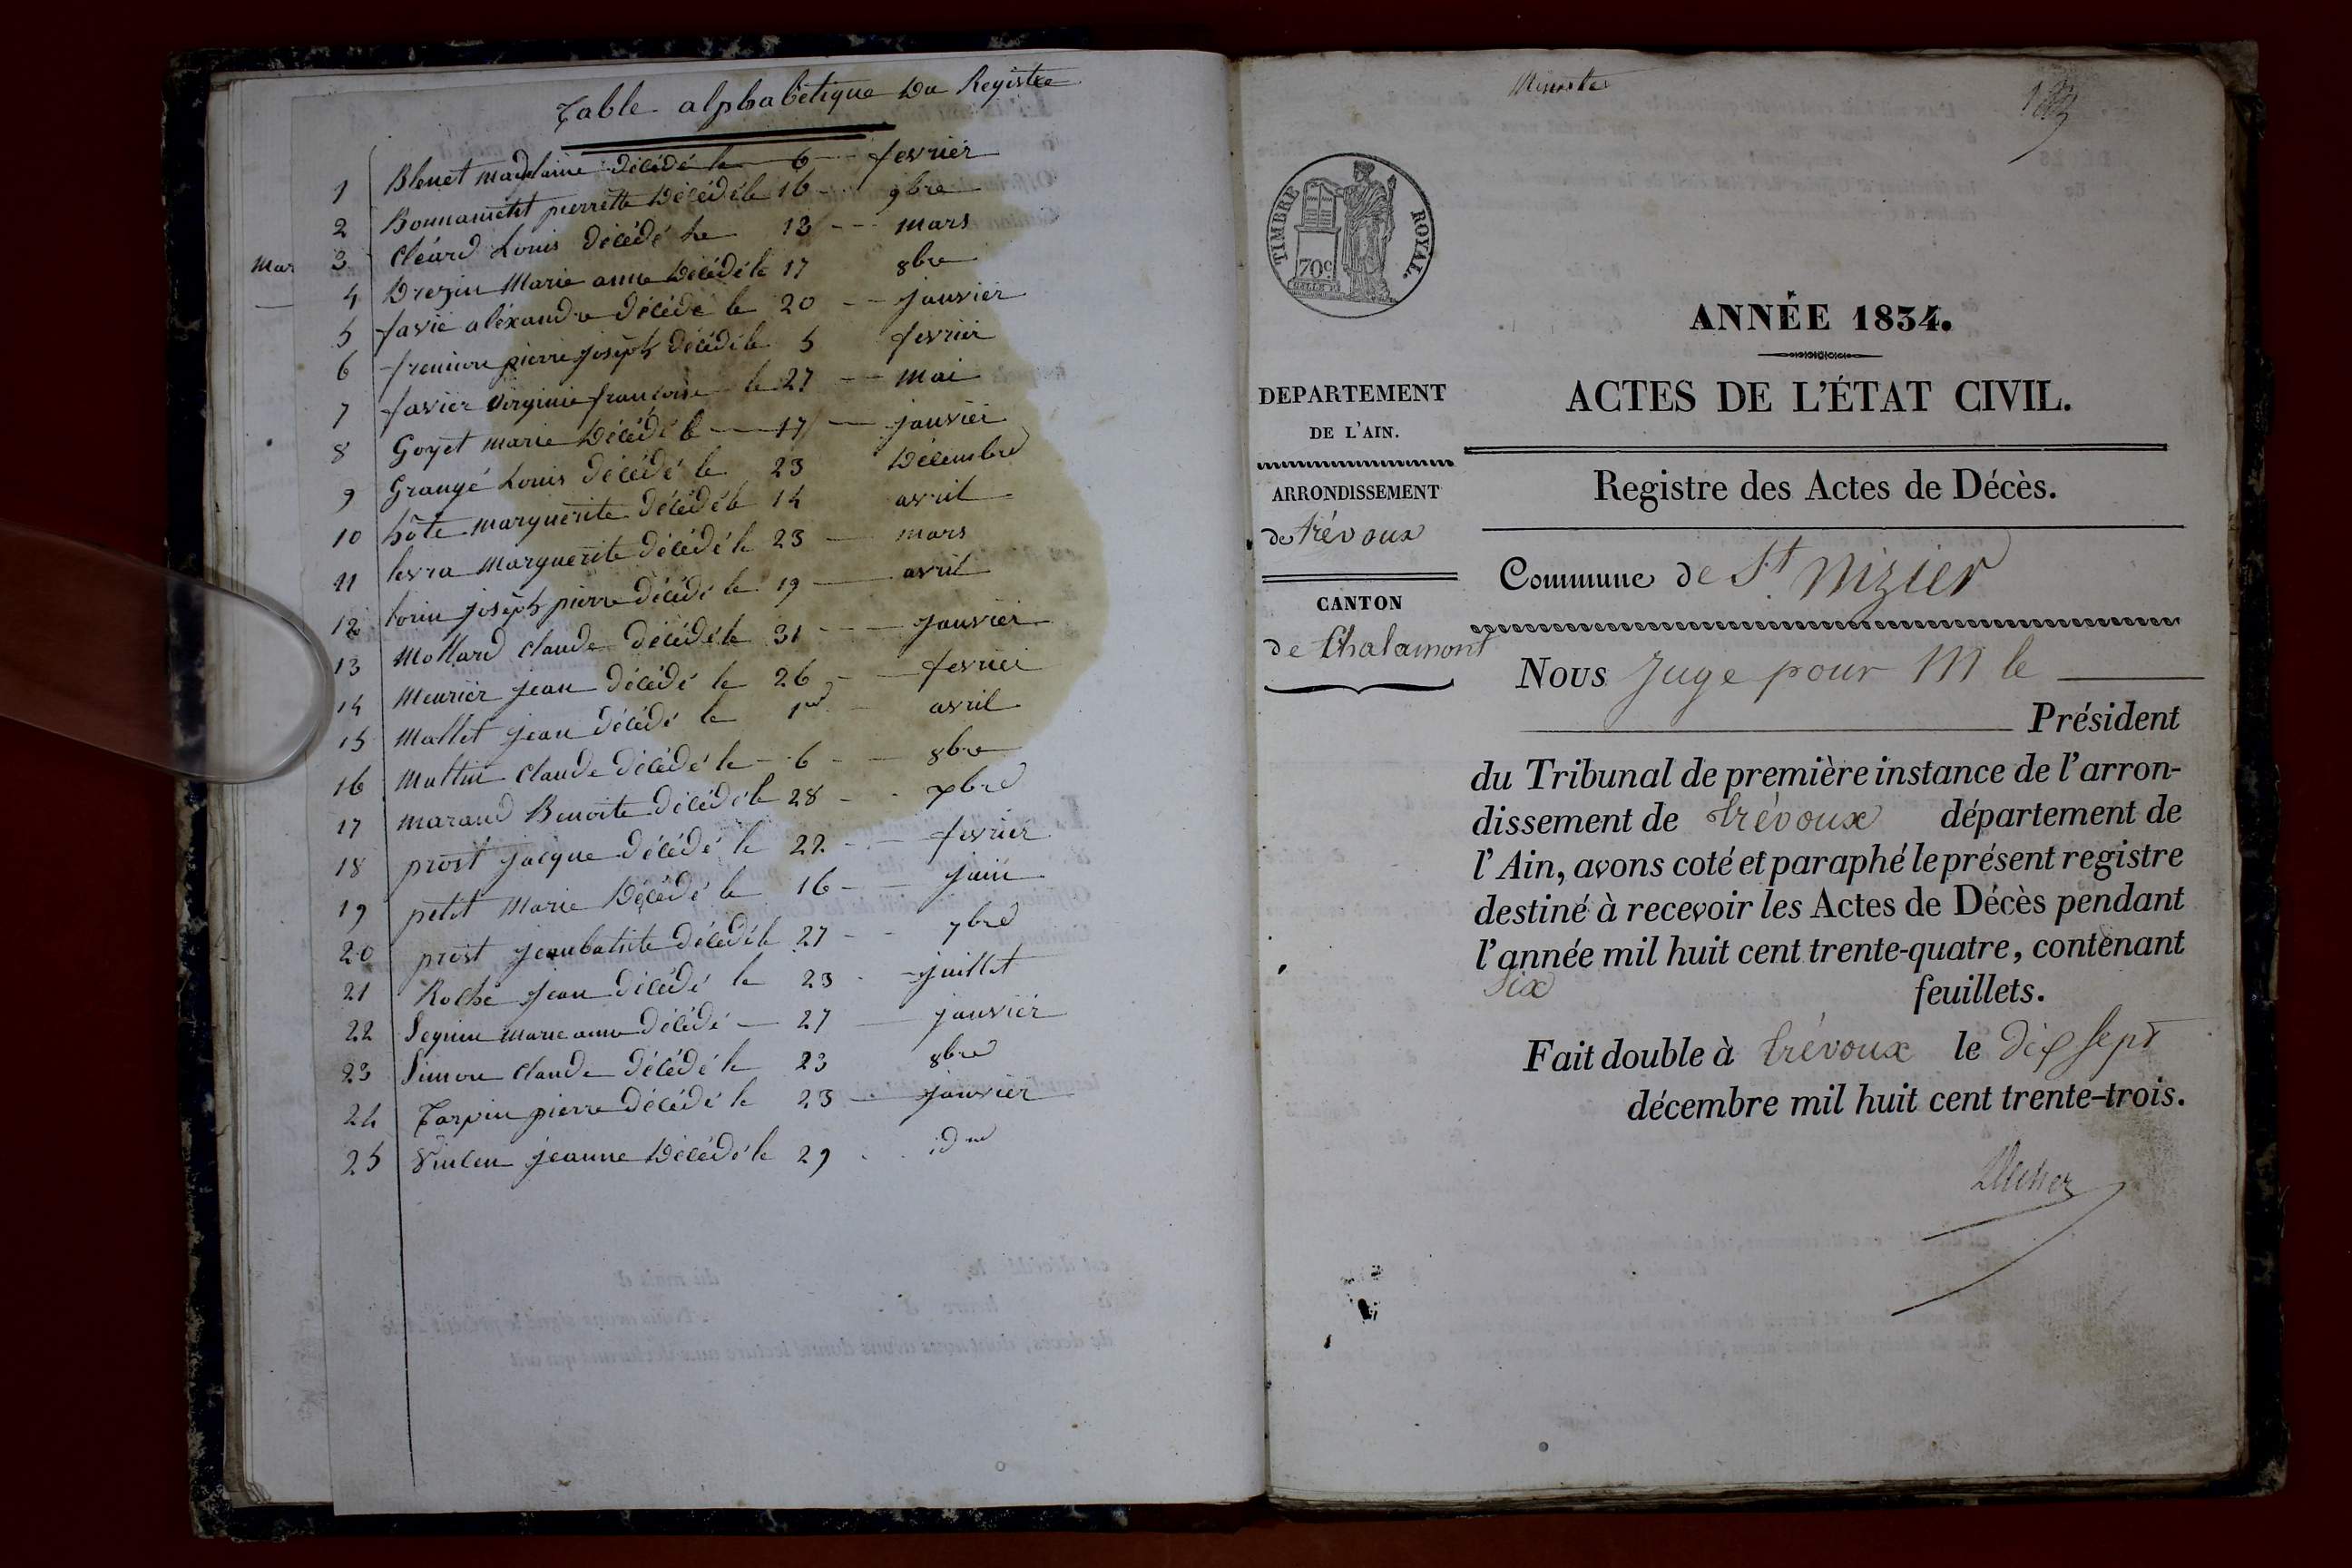 Table alphabétique Du Registre
1 Blenet madelaine décédé le 6 fevrier
2 pierrette Décédé le 16 9bre
Mar
3 Cléard Louis décédé le 13 mars
4 Drezin Marie anne Décédé le 17 8bre
5 favié aléxandre décédé le 20 janvier
6 pierre joseph décédé le 5 fevrier
7 favier virginie francoise le 27 Mai
8 Goyet marie Décédé le 17 janvier
9 Grangé Louis décédé le 23 Décembre
10 hôte marguerite décédé le 14 avril
11 levra Marguerite décédé le 23 mars
12 lorin joséph pierre décédé le 19 avril
13 Mollard Claude décédé le 31 janvier
14 Meurier jean décédé le 26 fevrier
15 Mallet jean décédé le 1er avril
16 Claude décédé le 6 8bre
17 marand Benoite décédé le 28
18 prost jacque décédé le 22 fevrier
19 petit Marie Décédé le 16 juin
20 prost jeanbatiste décédé le 27 7bre
21 Roche jean décédé le 23 juillet
22 Seguin marie anne décédé 27 janvier
23 Simon Claude décédé le 23 8bre
24 Tarpin pierre décédé le 23 janvier
25 jeanne Décédé le 29 idem
Minute
TIMBRE ROYAL.
70c.
ANNÉE 1834.
ACTES DE L'ÉTAT CIVIL.
Registre des Actes de Décès.
DEPARTEMENT
DE L'AIN.
ARRONDISSEMENT
de trévoux
CANTON
de Chalamont
Commune de St. Nizier
Nous Juge pour M le
Président
du Tribunal de première instance de l'arron-
dissement de trévoux département de
l'Ain, avons coté et paraphé le présent registre
destiné à recevoir les Actes de Décès pendant
l'année mil huit cent trente-quatre, contenant
Six feuillets.
Fait double à trévoux le dix sept
décembre mil huit cent trente-trois.